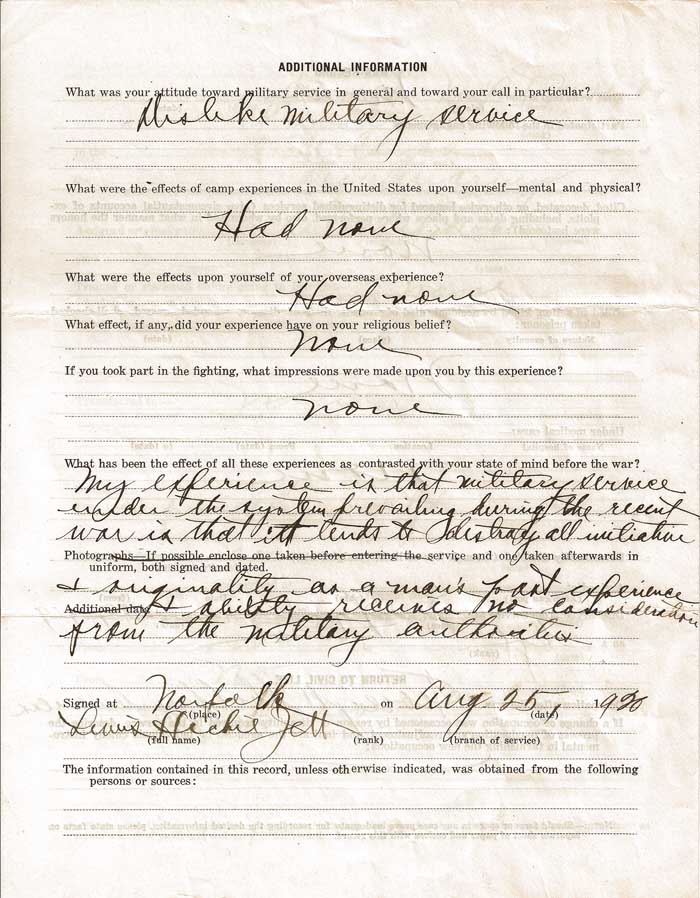 ADDITIONAL INFORMATION
What was your attitude toward military service in general and toward your call in particular?
Dislike military service
What were the effects of camp experiences in the United States upon yourself—mental and physical?
Had none
What were the effects upon yourself of your overseas experience?
Had none
What effect, if any, did your experience have on your religious belief?
None
If you took part in the fighting, what impressions were made upon you by this experience?
none
What has been the effect of all these experiences as contrasted with your state of mind before the war?
My experience is that military service
under the system prevailing during the recent
war is that it tends to destroy all initiative
Photographs—If possible enclose one taken before entering the service and one taken afterwards in
uniform, both signed and dated.
& originality as a man's past experience
Additional data
& ability receives no consideration
from the military authorities
Signed at Norfolk on Aug 25, 1920
(place) (date)
Lewis Jett
(full name) (rank) (branch of service)
The information contained in this record, unless otherwise indicated, was obtained from the following
persons or sources: